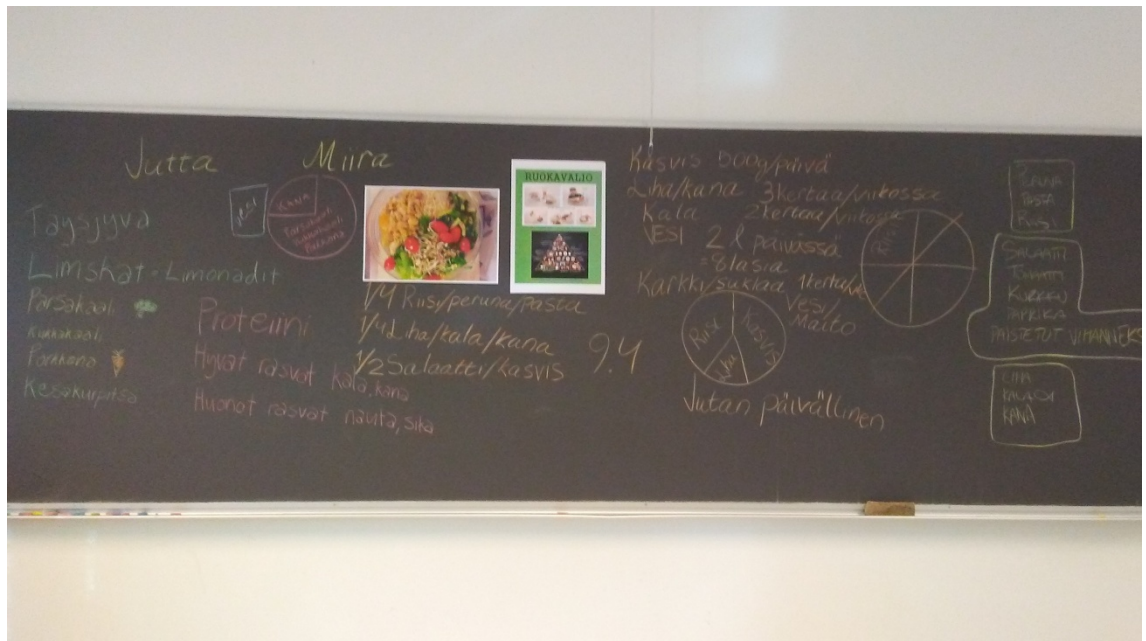 Jutta
Miira
Täysjyvä
Limskat - Limonadit
Parsakaali
Kukkakaali
Porkkana
Kesäkurpitsa
Vesi
Proteiini
Hyvät rasvat kala, kana
Huonot rasvat nauta, sika
RUOKAVALIO
1/4 Riisi/peruna/pasta
1/4 Liha/kala/kana
1/2 Salaatti/kasvis
9.4
Kasvis 500g/päivä
Liha/kana 3 kertaa/viikossa
Kala 2 kertaa/viikossa
VESI 2 l päivässä
= 8 lasia
Karkki/suklaa 1 kerta/vk
Vesi/
Maito
Riisi
KASVIS
Jutan päivällinen
Riisi
PASTA
RIISI
SALAATTI
TOMAATTI
KURKKU
PAPRIKA
PAISTETUT VIHANNEKS
LIHA
KALA
KANA